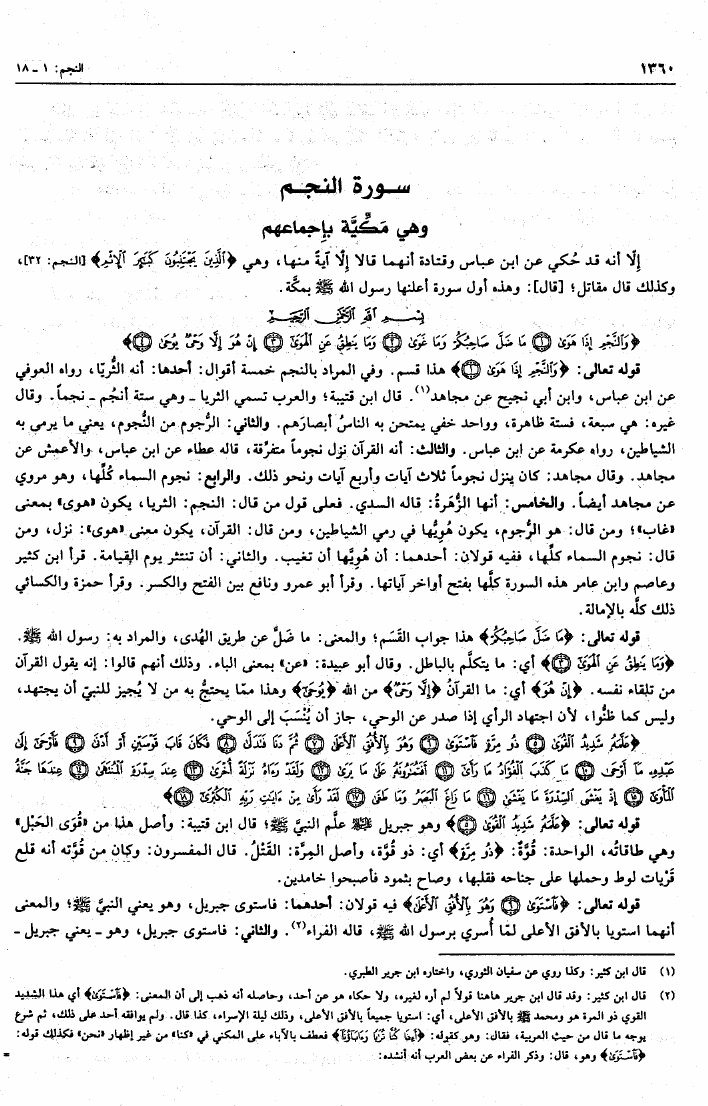 ١٣٦٠
النجم: ١ ـ ١٨
ســورة النجــم
وهي مَكِّيَّة بإجماعهم
إلّا أنه قد حُكي عن ابن عباس وقتادة أنهما قالا إلّا آيةً منها، وهي ﴿الَّذِينَ يَجْتَنِبُونَ كَبَائِرَ الْإِثْمِ﴾ [النجم: ٣٢]،
وكذلك قال مقاتل؛ [قال]: وهذه أول سورة أعلنها رسول الله ﷺ بمكّة.
بِسْمِ اللَّهِ الرَّحْمَٰنِ الرَّحِيمِ
﴿وَالنَّجْمِ إِذَا هَوَىٰ ۝١ مَا ضَلَّ صَاحِبُكُمْ وَمَا غَوَىٰ ۝٢ وَمَا يَنطِقُ عَنِ الْهَوَىٰ ۝٣ إِنْ هُوَ إِلَّا وَحْيٌ يُوحَىٰ ۝٤﴾
قوله تعالى: ﴿وَالنَّجْمِ إِذَا هَوَىٰ ۝١﴾ هذا قسم. وفي المراد بالنجم خمسة أقوال: أحدها: أنه الثُّريّا، رواه العوفي
عن ابن عباس، وابن أبي نجيح عن مجاهد(١). قال ابن قتيبة؛ والعرب تسمي الثريا ـ وهي ستة أنجُم ـ نجماً. وقال
غيره: هي سبعة، فستة ظاهرة، وواحد خفي يمتحن به الناسُ أبصارَهم. والثاني: الرُّجوم من النُّجوم، يعني ما يرمى به
الشياطين، رواه عكرمة عن ابن عباس. والثالث: أنه القرآن نزل نجوماً متفرِّقة، قاله عطاء عن ابن عباس، والأعمش عن
مجاهد. وقال مجاهد: كان ينزل نجوماً ثلاث آيات وأربع آيات ونحو ذلك. والرابع: نجوم السماء كُلِّها، وهو مروي
عن مجاهد أيضاً. والخامس: أنها الزُّهَرةُ: قاله السدي. فعلى قول من قال: النجم: الثريا، يكون «هوى» بمعنى
«غاب»؛ ومن قال: هو الرُّجوم، يكون هُوِيُّها في رمي الشياطين، ومن قال: القرآن، يكون معنى «هوى»: نزل، ومن
قال: نجوم السماء كلِّها، ففيه قولان: أحدهما: أن هُوِيَّها أن تغيب. والثاني: أن تنتثر يوم القيامة. قرأ ابن كثير
وعاصم وابن عامر هذه السورة كلَّها بفتح أواخر آياتها. وقرأ أبو عمرو ونافع بين الفتح والكسر. وقرأ حمزة والكسائي
ذلك كلَّه بالإمالة.
قوله تعالى: ﴿مَا ضَلَّ صَاحِبُكُمْ﴾ هذا جواب القَسَم؛ والمعنى: ما ضَلَّ عن طريق الهُدى، والمراد به: رسول الله ﷺ.
﴿وَمَا يَنطِقُ عَنِ الْهَوَىٰ ۝٣﴾ أي: ما يتكلَّم بالباطل. وقال أبو عبيدة: «عن» بمعنى الباء. وذلك أنهم قالوا: إنه يقول القرآن
من تلقاء نفسه. ﴿إِنْ هُوَ﴾ أي: ما القرآنُ ﴿إِلَّا وَحْيٌ﴾ من الله ﴿يُوحَىٰ﴾ وهذا ممّا يحتجُّ به من لا يُجيز للنبيّ أن يجتهد،
وليس كما ظنُّوا، لأن اجتهاد الرأي إذا صدر عن الوحي، جاز أن يُنْسَبَ إلى الوحي.
﴿عَلَّمَهُ شَدِيدُ الْقُوَىٰ ۝٥ ذُو مِرَّةٍ فَاسْتَوَىٰ ۝٦ وَهُوَ بِالْأُفُقِ الْأَعْلَىٰ ۝٧ ثُمَّ دَنَا فَتَدَلَّىٰ ۝٨ فَكَانَ قَابَ قَوْسَيْنِ أَوْ أَدْنَىٰ ۝٩ فَأَوْحَىٰ إِلَىٰ
عَبْدِهِ مَا أَوْحَىٰ ۝١٠ مَا كَذَبَ الْفُؤَادُ مَا رَأَىٰ ۝١١ أَفَتُمَارُونَهُ عَلَىٰ مَا يَرَىٰ ۝١٢ وَلَقَدْ رَآهُ نَزْلَةً أُخْرَىٰ ۝١٣ عِندَ سِدْرَةِ الْمُنتَهَىٰ ۝١٤ عِندَهَا جَنَّةُ
الْمَأْوَىٰ ۝١٥ إِذْ يَغْشَى السِّدْرَةَ مَا يَغْشَىٰ ۝١٦ مَا زَاغَ الْبَصَرُ وَمَا طَغَىٰ ۝١٧ لَقَدْ رَأَىٰ مِنْ آيَاتِ رَبِّهِ الْكُبْرَىٰ ۝١٨﴾
قوله تعالى: ﴿عَلَّمَهُ شَدِيدُ الْقُوَىٰ ۝٥﴾ وهو جبريل عليه السلام علَّم النبيَّ ﷺ؛ قال ابن قتيبة: وأصل هذا من «قُوَى الحَبْل»
وهي طاقاتُه، الواحدة: قُوَّةٌ: ﴿ذُو مِرَّةٍ﴾ أي: ذو قُوَّة، وأصل المِرَّة: الفَتْلُ. قال المفسرون: وكان من قُوَّته أنه قلع
قَرْيات لوط وحملها على جناحه فقلبها، وصاح بثمود فأصبحوا خامدين.
قوله تعالى: ﴿فَاسْتَوَىٰ ۝٦ وَهُوَ بِالْأُفُقِ الْأَعْلَىٰ﴾ فيه قولان: أحدهما: فاستوى جبريل، وهو يعني النبيَّ ﷺ؛ والمعنى
أنهما استويا بالأفق الأعلى لمّا أُسري برسول الله ﷺ، قاله الفراء(٢). والثاني: فاستوى جبريل، وهو ـ يعني جبريل ـ
(١) قال ابن كثير: وكذا روي عن سفيان الثوري، واختاره ابن جرير الطبري.
(٢) قال ابن كثير: وقد قال ابن جرير هاهنا قولاً لم أره لغيره، ولا حكاه هو عن أحد، وحاصله أنه ذهب إلى أن المعنى: ﴿فَاسْتَوَىٰ﴾ أي هذا الشديد
القوي ذو المرة هو ومحمد ﷺ بالأفق الأعلى، أي: استويا جميعاً بالأفق الأعلى، وذلك ليلة الإسراء، كذا قال. ولم يوافقه أحد على ذلك، ثم شرع
يوجه ما قال من حيث العربية، فقال: وهو كقوله: ﴿أَئِذَا كُنَّا تُرَابًا وَآبَاؤُنَا﴾ فعطف بالآباء على المكني في «كنا» من غير إظهار «نحن» فكذلك قوله:
﴿فَاسْتَوَىٰ﴾ وهو، قال: وذكر الفراء عن بعض العرب أنه أنشده: =